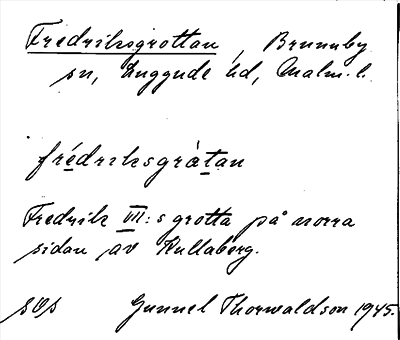 Fredriksgrottan, Brunnby
sn, Luggude hd, Malm. l.
frédriksgråtan
Fredrik VII:s grotta på norra
sidan av Kullaberg.
sOs Gunnel Thorwaldson 1945.